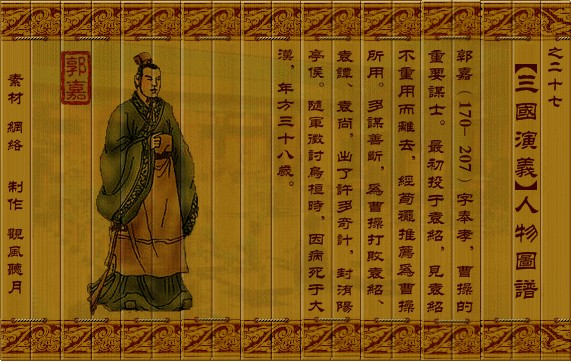 之二十七
【三國演義】人物圖譜
郭嘉（170—207）字奉孝，曹操的
重要謀士。最初投于袁紹，見袁紹
不重用而離去，經荀彧推薦爲曹操
所用。多謀善斷，爲曹操打敗袁紹、
袁譚、袁尚，出了許多奇計，封洧陽
亭侯。隨軍徵討烏桓時，因病死于大
漠，年方三十八歲。
郭嘉
素材 網絡 制作 觀風聽月